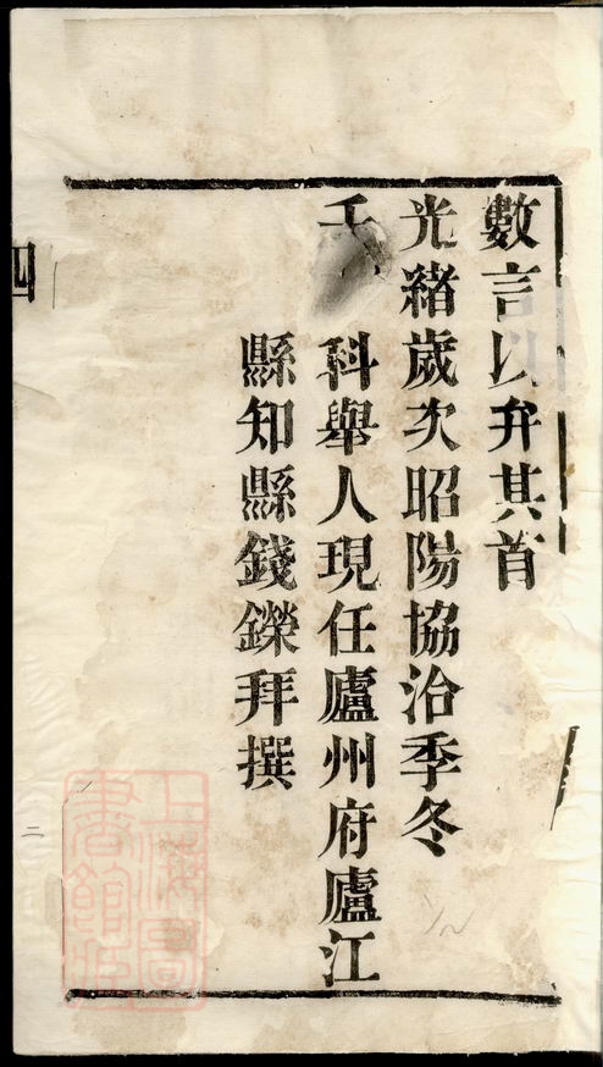 數言以弁其首
光緒歲次昭陽協洽季冬
科舉人現任廬州府廬江
縣知縣錢鑅拜撰
四
二
上海圖書館藏